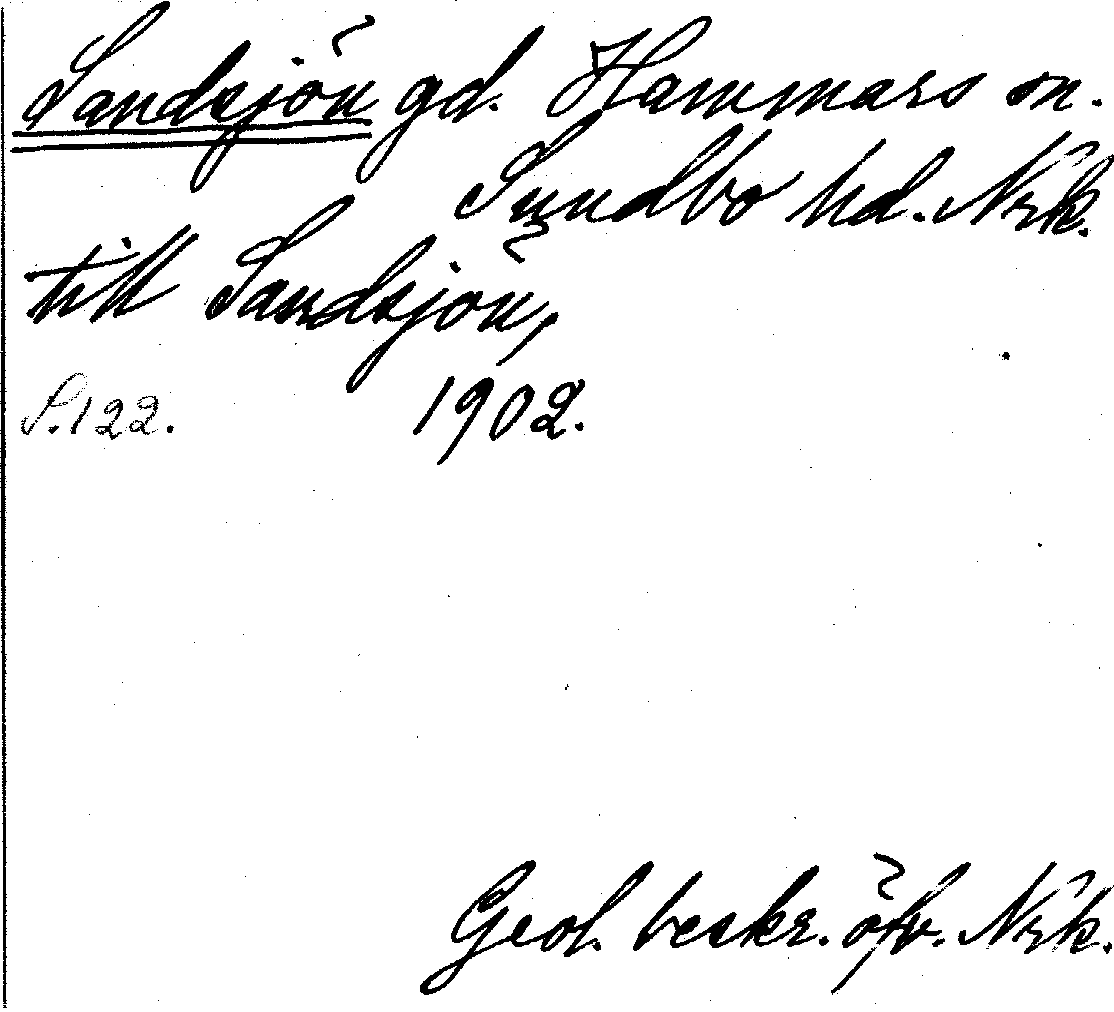 Sandsjön gd. Hammars sn.
Sundbo hd. Nrk.
till Sandsjön,
S. 122. 1902.
Geol. beskr. öfv. Nrk.